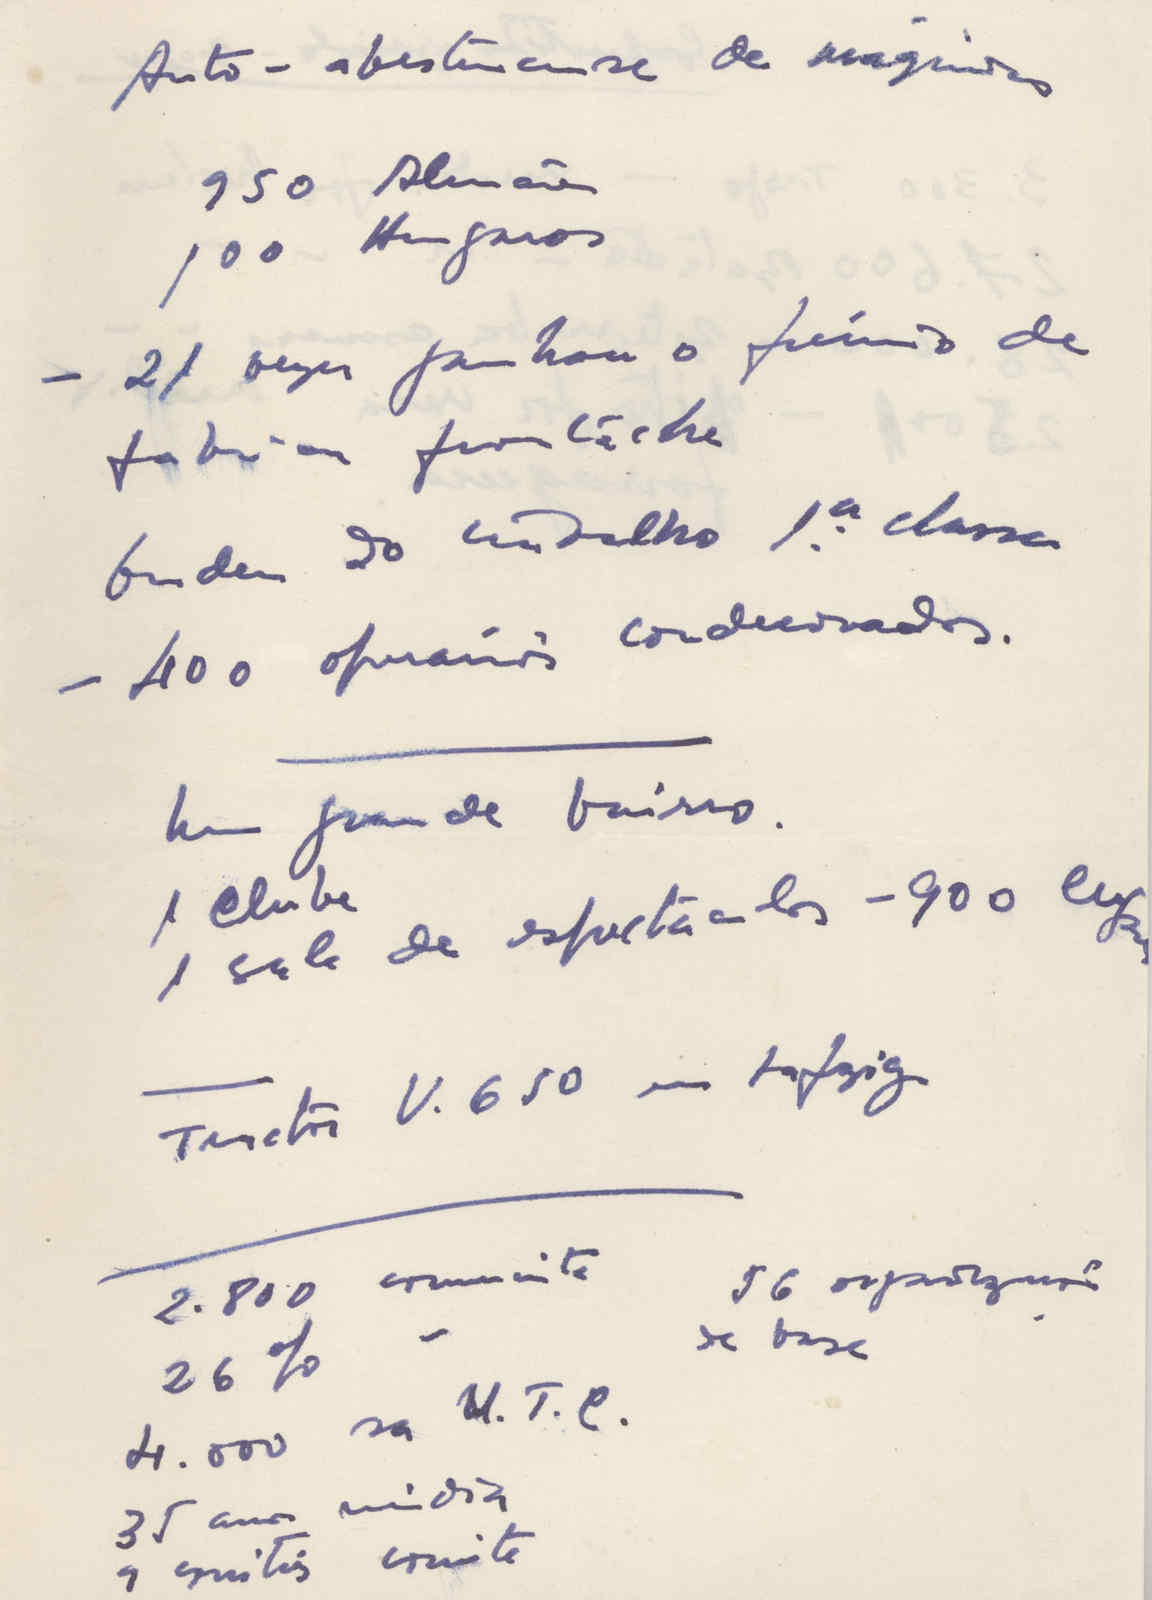 Auto-abastecem-se de máquinas
950 Alemães
100 Hungaros
- 21 vezes ganhou o prémio de
fabrica
do trabalho 1.ª classe
- 400 operários condecorados.
Um grande bairro.
1 Clube
1 sala de espectáculos - 900 lugares
Tractor V. 650 em
2.800 comunista 56 organizações
26 % - de base
4.000 na U.T.C.
35 anos média
9 comités comité